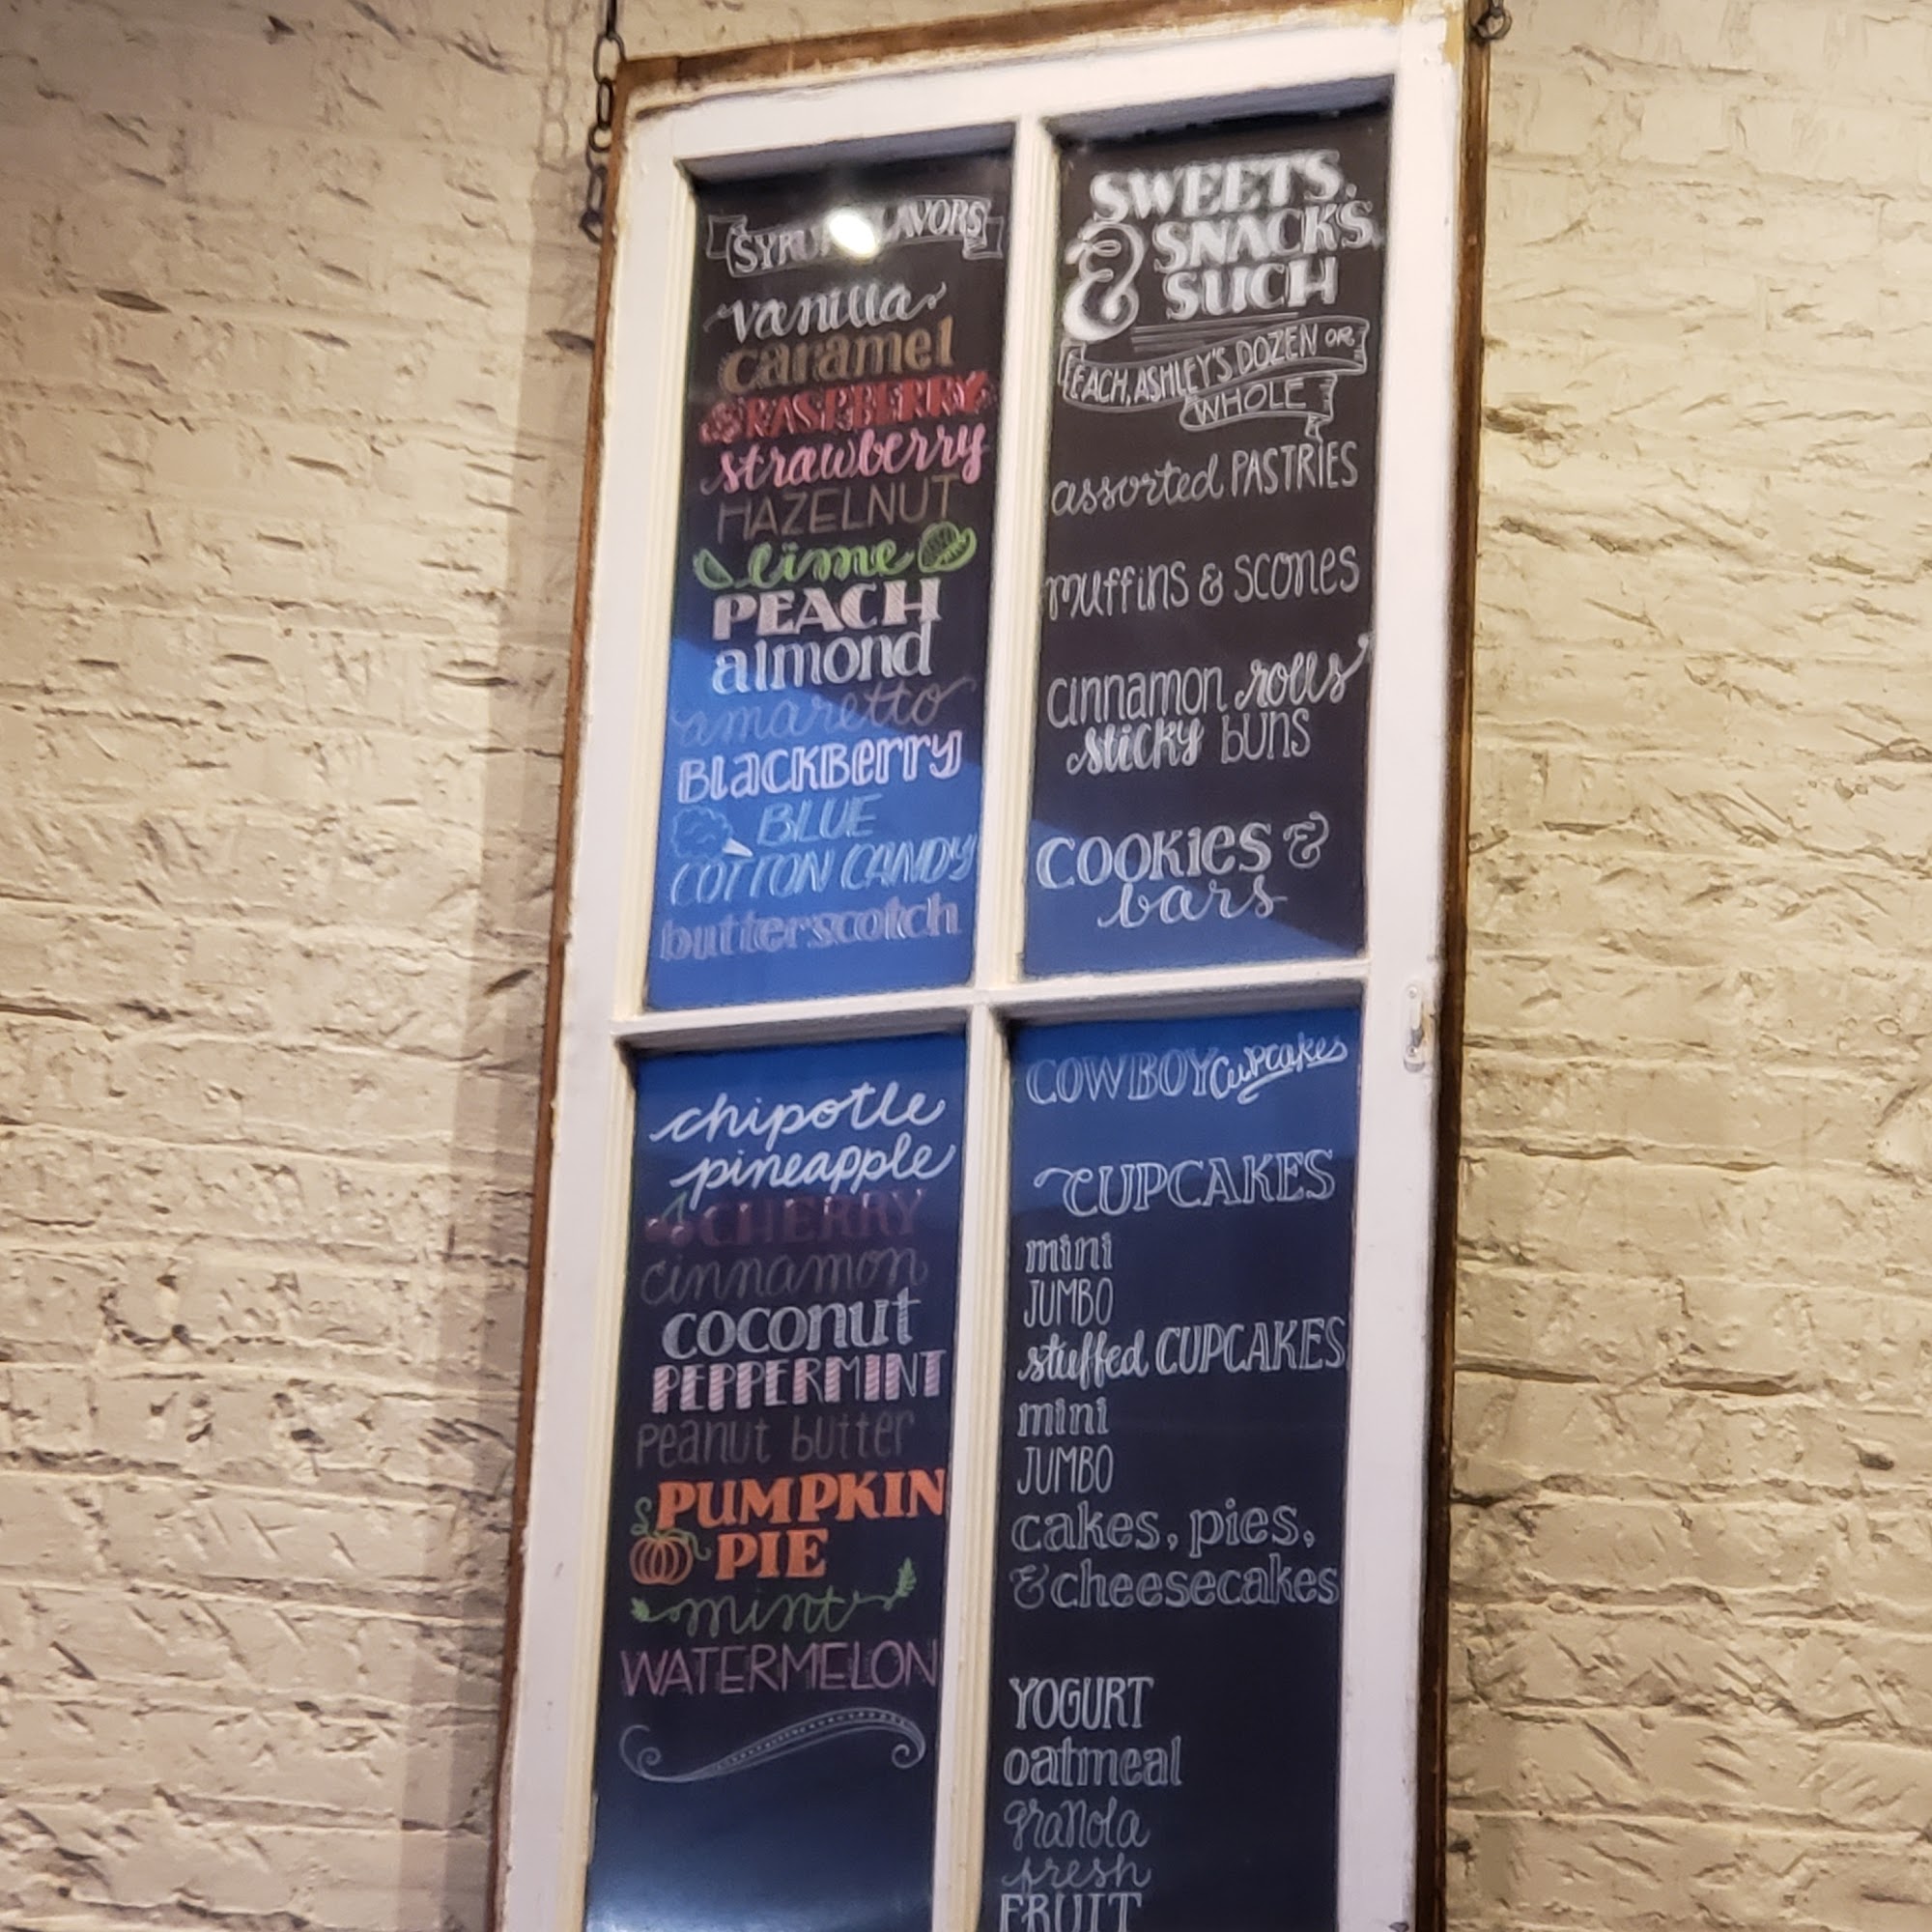 SYRUP FLAVORS
vanilla
caramel
RASPBERRY
strawberry
HAZELNUT
lime
PEACH
almond
amaretto
BLACKBerry
BLUE
COTTON CANDY
butterscotch
chipotle
pineapple
CHERRY
cinnamon
coconut
PEPPERMINT
peanut butter
PUMPKIN
PIE
mint
WATERMELON
SWEETS,
SNACKS,
& SUCH
EACH, ASHLEY'S DOZEN OR
WHOLE
assorted PASTRIES
muffins & SCONES
cinnamon rolls
sticky buns
COOKies &
bars
COWBOY Cupcakes
CUPCAKES
mini
JUMBO
stuffed CUPCAKES
mini
JUMBO
cakes, pies,
& cheesecakes
YOGURT
oatmeal
graNola
fresh
FRUIT